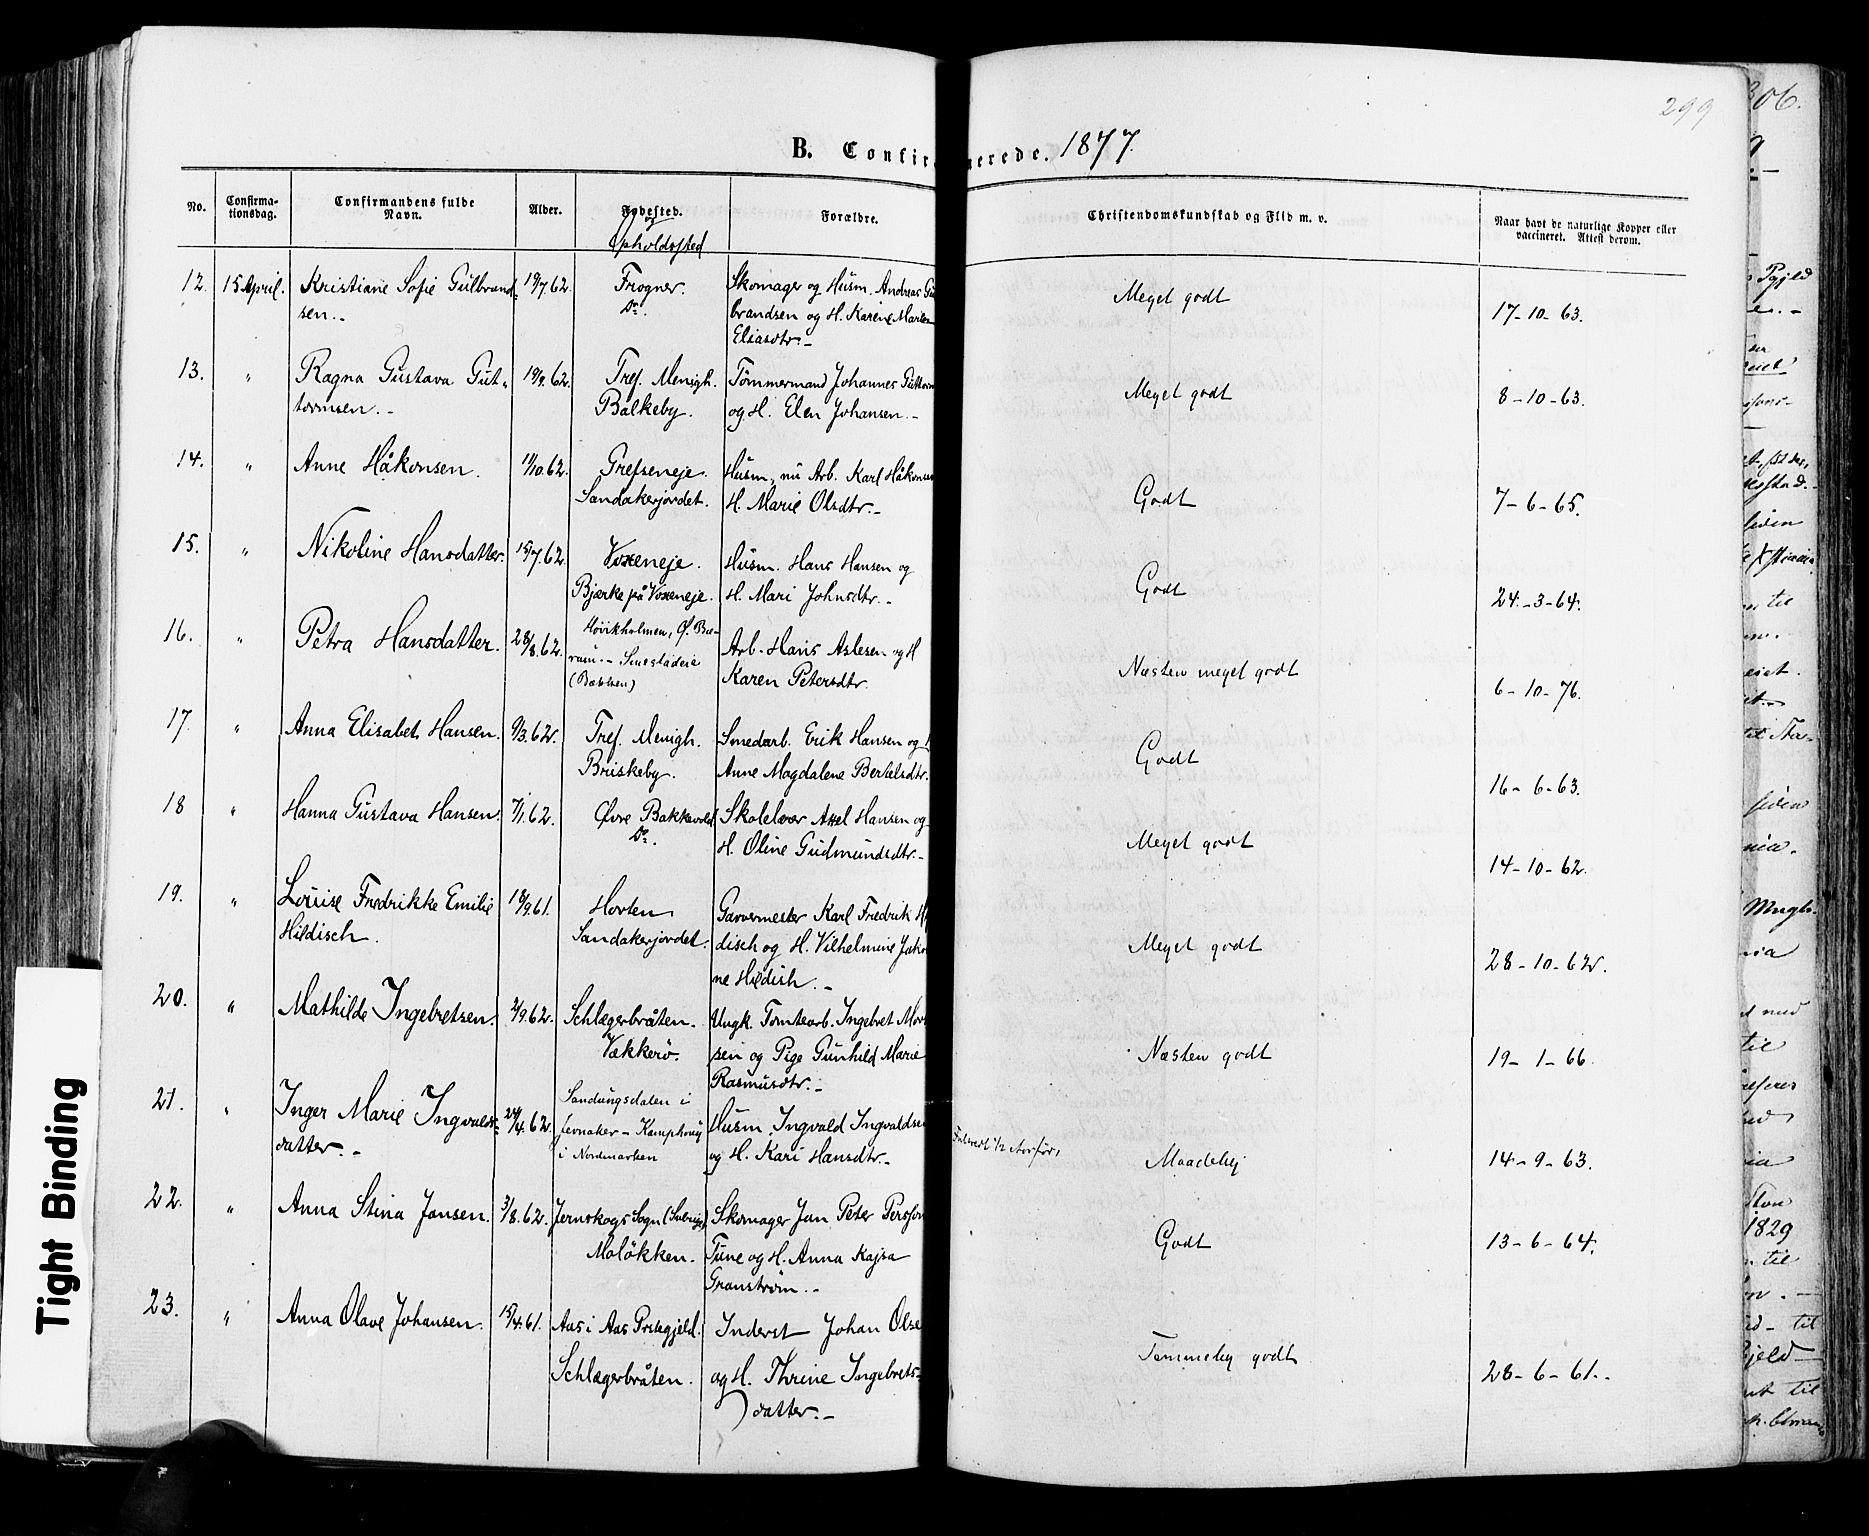 299
306.
B. Confirmerede. 1877.
No.
Confirma-
tionsdag.
Confirmandens fulde
Navn.
Alder.
Fødested.
og
Opholdssted
Forældre.
Christendomskundskab og Flid m. v.
Naar havt de naturlige Kopper eller
vaccineret. Attest derom.
12. 15 April. Kristiane Sofie Gulbrand- 19/7 62. Frogner. Skomager og Husm. Andreas Gul Meget godt 17-10-63.
sen.- Do. brandsen og H. Karine Marie
Eliasdtr.-
13. " Ragna Gustava Gut- 19/9. 62. Tref. Menigh. Tømmermand Johannes Guttorm Meget godt 8-10-63.
tormsen.- Balkeby. og H. Elen Johansen.-
14. " Anne Håkonsen. 11/10. 62. Grefseneje. Husm., nu Arb. Karl Håkonsen Godt 7-6-65.
Sandakerjordet. H. Marie Olsdtr.-
15. " Nikoline Hansdatter. 15/7. 62. Voxeneje. Husm. Hans Hansen og Godt 24-3-64.
Bjerke på Voxeneje. H. Mari Johnsdtr.-
16. " Petra Hansdatter. 28/8. 62. Høvikholmen, Ø. Bæ- Arb. Hans Aslesen og H Næsten meget godt 6-10-76.
rum.- Smestadeie Karen Petersdtr.
(Bakken)
17. " Anna Elisabet Hansen. 9/3. 62. Tref. Menigh. Smedarb. Erik Hansen og H Godt 16-6-63.
Briskeby. Anne Magdalene Bertelsdtr.
18 " Hanna Gustava Hansen. 7/1. 62. Øvre Bakkevold Skolelærer Axel Hansen og Meget godt 14-10-62.
Do. H. Oline Gudmundsdtr.-
19. " Louise Fredrikke Emilie 18/9. 61. Horten Garvermester Karl Fredrik Hil Meget godt 28-10-62.
Hildisch. Sandakerjordet. disch og H. Vilhelmine Jako
ne Hildish.-
20. " Mathilde Ingebretsen. 2/9. 62. Schlægerbråten. Ungk. Tomtearb. Ingebret Mort Næsten godt 19-1-66.
Vækkerø. sen og Pige Gunhild Marie
Rasmusdtr.-
21. " Inger Marie Ingvalds- 24/4. 62. Sandungsdalen i Husm. Ingvald Ingvaldsen Maadelig 14-9-63.
datter.- Jevnaker - Kamphoug og H. Kari Hansdtr.-
i Nordmarken
22. " Anna Stina Jansen. 3/8. 62. Jernskogs Sogn (Sverige) Skomager Jan Peter Persson Godt 13-6-64.
Moløkken. Tune og H. Anna Kajsa
Granstrøm.-
23. " Anna Olave Johansen. 15/4. 61. Aas i Aas Prstegjeld. Inderst Johan Olse Temmelig godt 28-6-61.-
Schlægerbråten. og H. Thrine Ingebrets-
datter.-
Tight Binding
1829